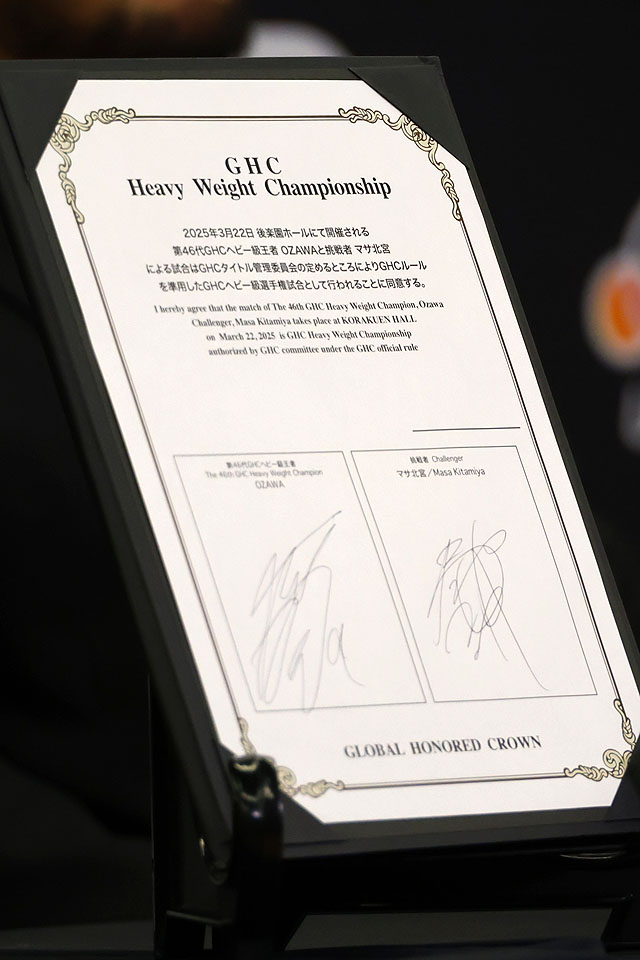 GHC
Heavy Weight Championship
2025年3月22日 後楽園ホールにて開催される
第46代GHCヘビー級王者 OZAWAと挑戦者 マサ北宮
による試合はGHCタイトル管理委員会の定めるところによりGHCルール
を準用したGHCヘビー級選手権試合として行われることに同意する。
I hereby agree that the match of The 46th GHC Heavy Weight Champion, Ozawa
Challenger, Masa Kitamiya takes place at KORAKUEN HALL
on March 22, 2025 is GHC Heavy Weight Championship
authorized by GHC committee under the GHC official rule
第46代GHCヘビー級王者
The 46th GHC Heavy Weight Champion
OZAWA
挑戦者 Challenger
マサ北宮／Masa Kitamiya
GLOBAL HONORED CROWN